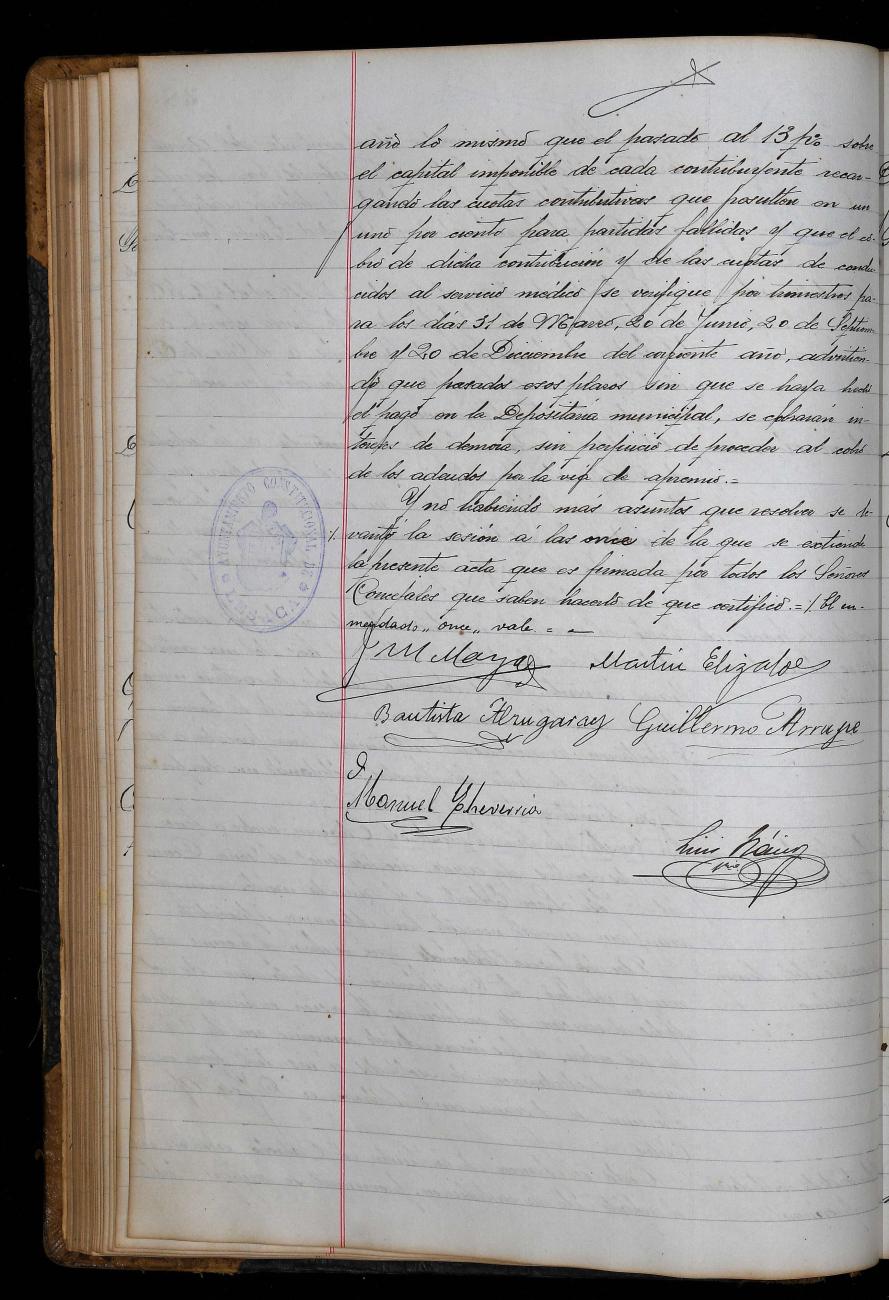 año lo mismo que el pasado al 13 p% sobre
el capital imponible de cada contribuyente recar-
gando las cuotas contributivas que resulten en un
uno por ciento para partidas fallidas y que el co-
bro de dicha contribución y de las cuotas de condu-
cidos al servicio médico se verifique por trimestres pa-
ra los días 31 de Marzo, 20 de Junio, 20 de Septiem-
bre y 20 de Diciembre del corriente año, advirtien-
do que pasados esos plazos sin que se haya hecho
el pago en la Depositaría municipal, se cobrarán in-
tereses de demora, sin perjuicio de proceder al cobro
de los adeudos por la vía de apremio.=
Y no habiendo más asuntos que resolver se le-
/. vantó la sesión á las once de la que se extiende
la presente acta que es firmada por todos los Señores
Concejales que saben hacerlo de que certifico.= /. El en-
mendado „ once „ vale. = =
J M Maya Martin Elizalde
Bautista Guillermo Arruye
Manuel Echeverria
Luis
AYUNTAMIENTO CONSTITUCIONAL DE